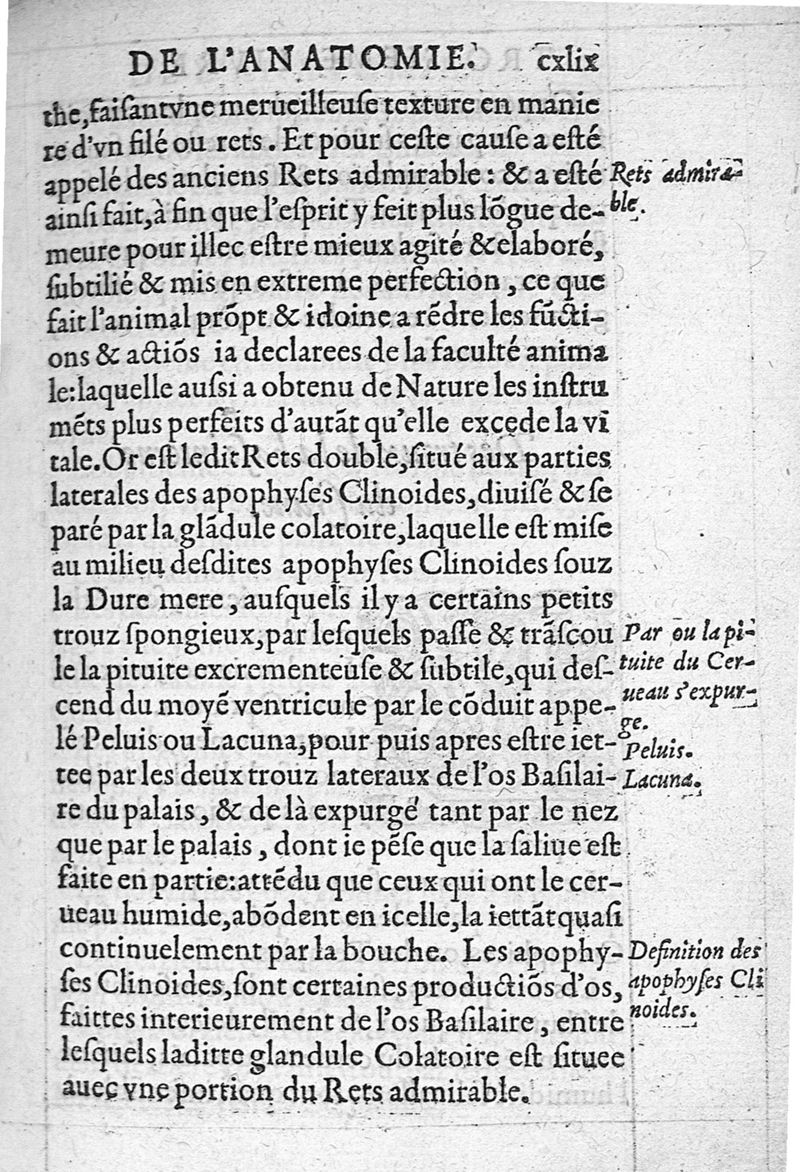 DE L'ANATOMIE. cxlix
the, faiſant vne merueilleuſe texture en manie
re d'vn filé ou rets. Et pour ceſte cauſe a eſté
appelé des anciens Rets admirable: & a eſté
ainſi fait, à fin que l'eſprit y feit plus lõgue de-
meure pour illec eſtre mieux agité & elaboré,
ſubtilié & mis en extreme perfection, ce que
fait l'animal prõpt & idoine a rẽdre les fũcti-
ons & actiõs ia declarees de la faculté anima
le: laquelle auſsi a obtenu de Nature les inſtru
mẽts plus perfeits d'autãt qu'elle excede la vi
tale. Or eſt ledit Rets double, ſitué aux parties
laterales des apophyſes Clinoides, diuiſé & ſe
paré par la glãdule colatoire, laquelle eſt miſe
au milieu deſdites apophyſes Clinoides ſouz
la Dure mere, auſquels il y a certains petits
trouz ſpongieux, par leſquels paſſe & trãſcou
le la pituite excrementeuſe & ſubtile, qui deſ-
cend du moyẽ ventricule par le cõduit appe-
lé Peluis ou Lacuna, pour puis apres eſtre iet-
tee par les deux trouz lateraux de l'os Baſilai-
re du palais, & de là expurgé tant par le nez
que par le palais, dont ie pẽſe que la ſaliue eſt
faite en partie: attẽdu que ceux qui ont le cer-
ueau humide, abõdent en icelle, la iettãt quaſi
continuelement par la bouche. Les apophy-
ſes Clinoides, ſont certaines productiõs d'os,
faittes interieurement de l'os Baſilaire, entre
leſquels laditte glandule Colatoire eſt ſituee
auec vne portion du Rets admirable.
Rets admira-
ble.
Par ou la pi-
tuite du Cer-
ueau s'expur-
ge.
Peluis.
Lacuna.
Definition des
apophyſes Cli
noides.